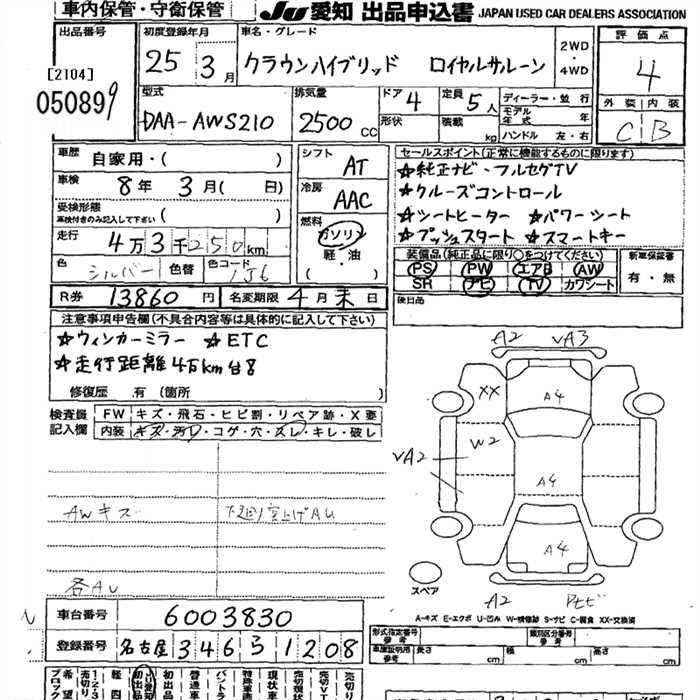 車内保管・守衛保管
JU愛知 出品申込書 JAPAN USED CAR DEALERS ASSOCIATION
出品番号
[2104]
050899
初度登録年月
25年3月
車名・グレード
クラウンハイブリッド ロイヤルサルーン
2WD
・
4WD
評価点
4
外装 内装
C B
型式
DAA-AWS210
排気量
2500 CC
ドア 4
形状
定員 5人
積載 kg
ディーラー・並行
モデル年式 年
ハンドル 左・右
車歴 自家用・( )
車検 8年 3月( 日)
受検形態
車検付きのみ記入して下さい ( )
走行 4万3千250km
色 シルバー 色替 色コード 1J6
シフト AT
冷房 AAC
燃料
ガソリン
軽・油
( ・ )
セールスポイント(正常に機能するものに限ります)
☆純正ナビ・フルセグTV
☆クルーズコントロール
☆シートヒーター ☆パワーシート
☆プッシュスタート ☆スマートキー
装備品(純正品に限り○をつけてください)
PS PW エアB AW
SR ナビ TV カワシート
新車保証書
有・無
後日品
R券 13860円 名変期限 4月末日
注意事項申告欄(不具合内容等は具体的に記入して下さい)
☆ウィンカーミラー ☆ETC
☆走行距離4万km台8
修復歴 有(箇所 )
検査員記入欄
FW キズ・飛石・ヒビ割・リペア跡・X要
内装 キズ・汚れ・コゲ・穴・スレ・キレ・破レ
AWキズ
各AU
A2 VA3
XX
A4
W2
VA2
A4
A4
A2
スペア
A-キズ E-エクボ U-凹み W-補修跡 S-サビ C-腐食 XX-交換済
車台番号 6003830
登録番号 名古屋 346 ろ 1208
形式指定番号
参考
類別区分番号
参考
車庫証明用
参考
長さ cm
幅 cm
高さ cm